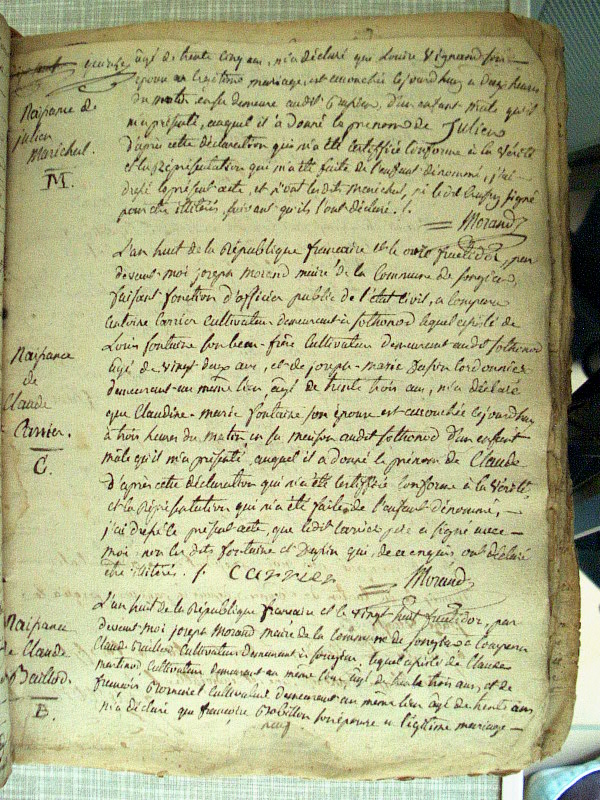 âgé de trente cinq ans, m'a déclaré que Louise Vignand son
épouse en légitime mariage, est accouchée cejourdhuy a deux heures
du matin en sa demeure audit d'un enfant mâle qu'il
m'a présenté, auquel il a donné le prénom de Julien
d'après cette déclaration qui m'a été certiffiée conforme à la vérité
et la représentation qui m'a été faite de l'enfant dénommé, j'ai
dressé le présent acte, et n'ont lesdits Maréchal, ni signé
pour être illitérés, suivant qu'ils l'ont déclaré. /.
Morand
Naissance de
Julien
Maréchal.
M.
L'an huit de la République française et le onze fructidor, par
devant moi joseph Morand maire de la Commune de songieu,
faisant fonction d'officier public de l'état civil, a comparu
antoine Carrier Cultivateur demeurant à sothonod lequel assisté de
Louis fontaine son beau-frère Cultivateur demeurant audit sothonod
âgé de vingt-deux ans, et de joseph-marie Dupin Cordonnier
demeurant au même lieu âgé de trente trois ans, m'a déclaré
que Claudine-marie fontaine son épouse est accouchée cejourdhuy
à trois heures du matin en sa maison audit sothonod d'un enfant
mâle qu'il m'a présenté auquel il a donné le prénom de Claude
D'après cette déclaration qui m'a été certiffiée conforme à la vérité
et la représentation qui m'a été faite de l'enfant dénommé, —
j'ai dressé le présent acte, que ledit Carrier père a signé avec —
moi, non lesdits fontaine et Dupin qui, de ce enquis ont déclaré
être illitérés. /. Carrier
Morand
Naissance
de
Claude
Carrier.
C.
L'an huit de la République française et le vingt huit fructidor, par
devant moi joseph Morand maire de la Commune de songieu a Comparu
Claude Baillod Cultivateur demeurant à songieu, lequel assisté de Claude
martinod Cultivateur demeurant au même lieu âgé de trente trois ans, et de
françois Cultivateur demeurant au même lieu âgé de trente ans
m'a déclaré que françoise son épouse en légitime mariage —
neuf
Naissance
de Claude
Baillod.
B.